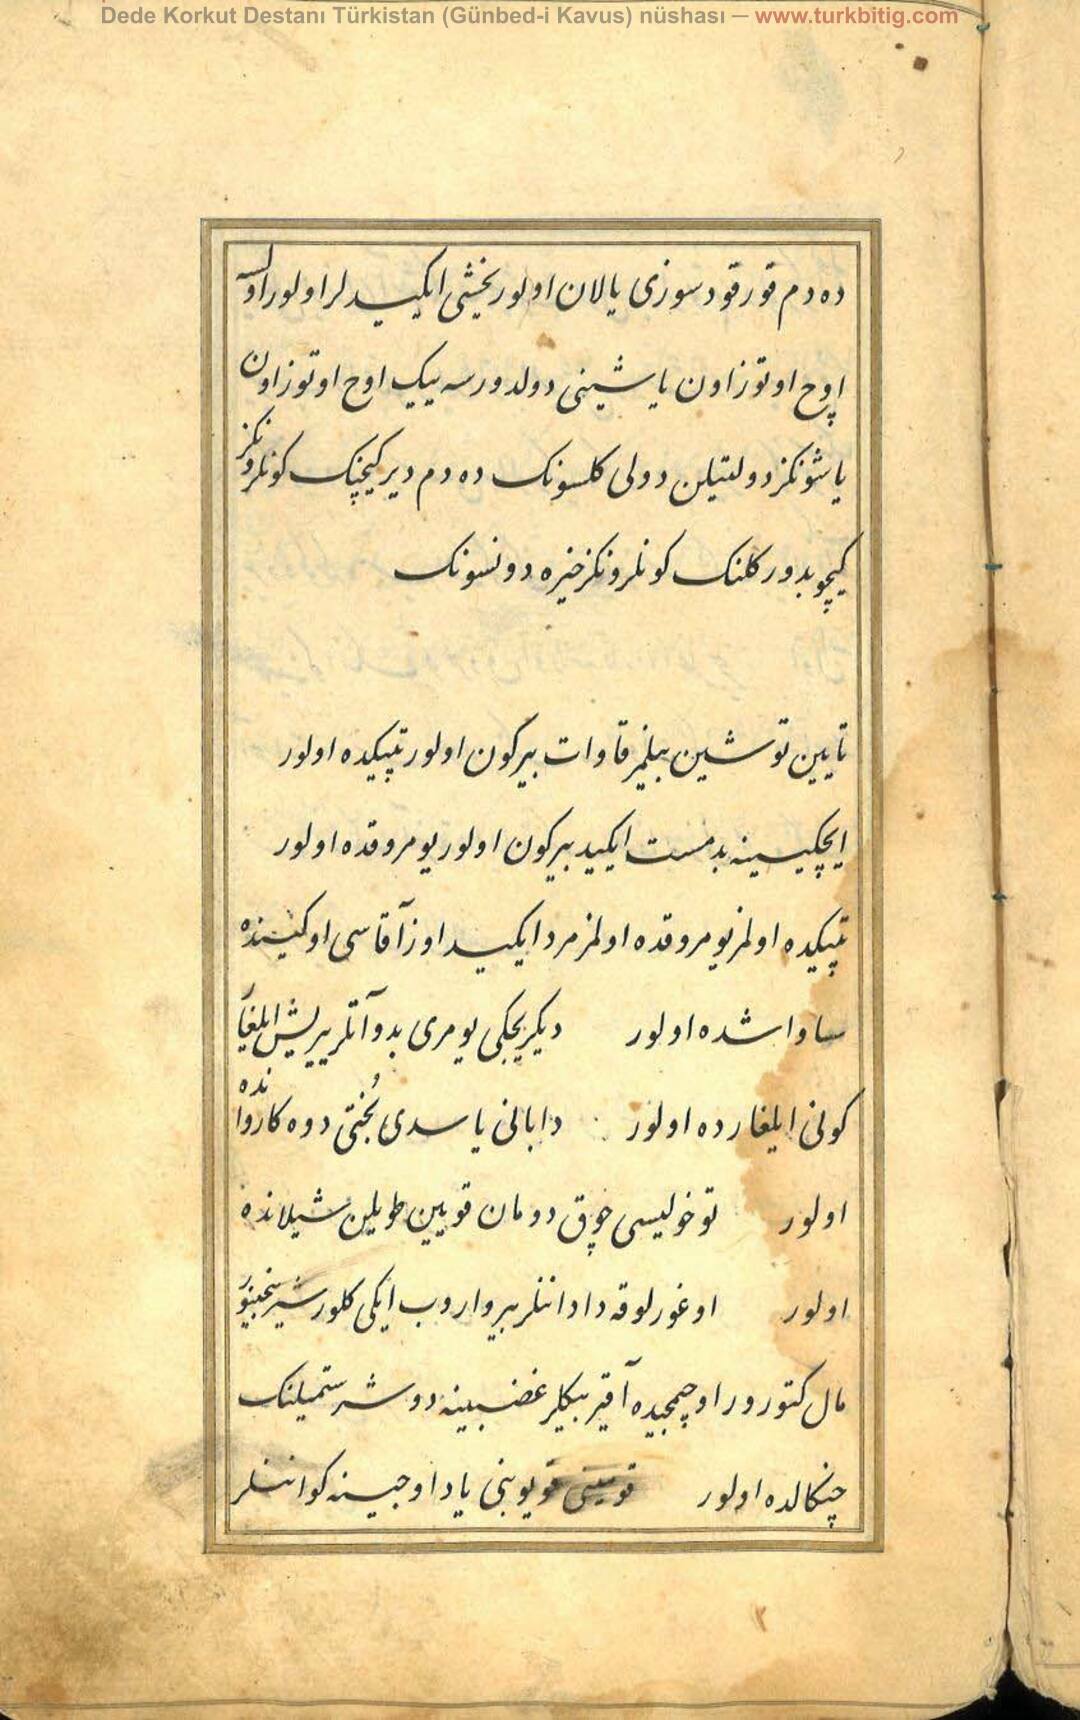 Dede Korkut Destanı Türkistan (Günbed-i Kavus) nüshası — www.turkbitig.com
ده دم قورقود سوزی یالان اولور یخشی ایکیدلر اولور اولسه
اوچ اوتوز اون یاشینی دولدورسه بیک اوچ اوتوز اون
یاشونکز دولتیلن دولی کلسونک ده دم دیر کیچنک کونلرونکز
کیچوبدور کلنک کونلرونکز خیره دونسونک
تایین توشین بیلمز قاوات بیر کون اولور تپیکده اولور
ایچکیسینه بدمست ایکید بیر کون اولور یومروقده اولور
تپیکده اولمز یومروقده اولمز مرد ایکید اوز آقاسی اوکینده
ساواشده اولور دیکریجکی یومری بدو آتلر یریش ایلغار
کونی ایلغارده اولور دابانی یاسدی بُختی دوه کارواندہ
اولور توخولیسی چوق دومان قویین طویلن شیلانده
اولور اوغورلوقه دادانلر بیر واروب ایکی کلور
مال کتورور اوچمجیده آقیر بیکلر غضبینه دوشر ستمیلنک
چنکالده اولور قویوبنی یاد اوجینه کواننلر
۲